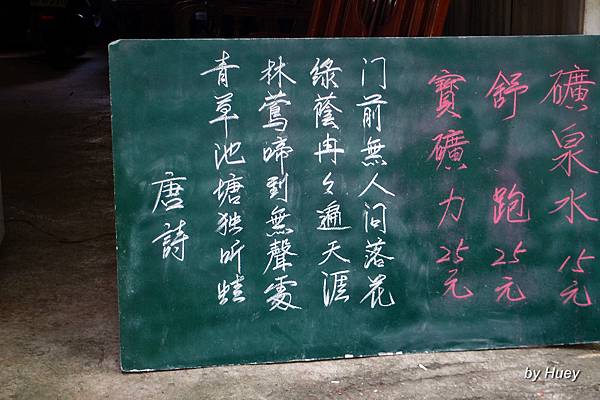 礦泉水 15元
舒跑 25元
寶礦力 25元
门前無人问落花
綠蔭冉々遍天涯
林鶯啼到無聲處
青草池塘独听蛙
唐詩
by Huey